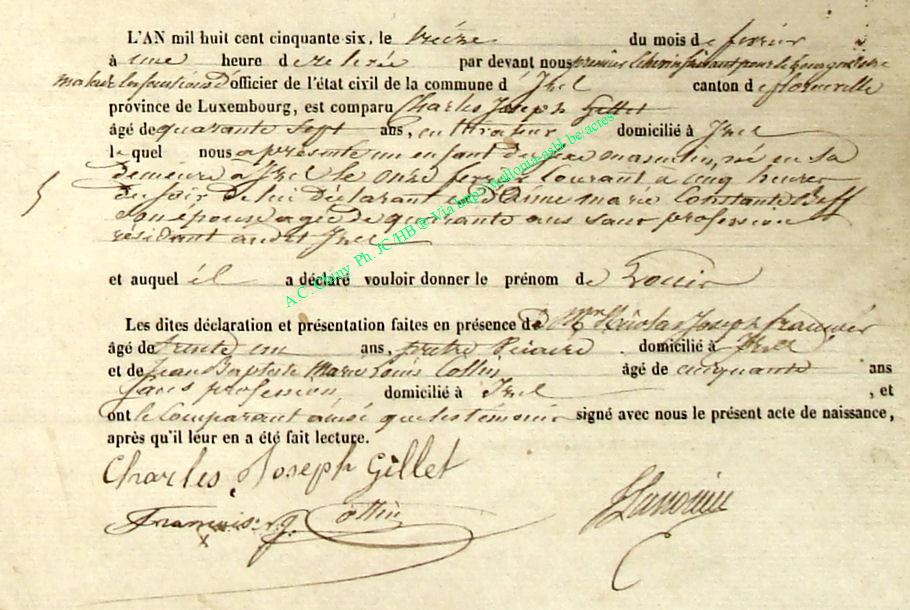 L'AN mil huit cent cinquante-six, le treize du mois de fevrier
à une heure de relevée par devant nous premier Echevin faisant pour le bourgmestre
d'officier de l'état civil de la commune d'Izel canton de florenville
province de Luxembourg, est comparu Charles Joseph Gillet
âgé de quarante sept ans, cultivateur domicilié à Izel
lequel nous a présenté un enfant du sexe masculin, né en sa
demeure à Izel le onze fevrier courant à cinq heures
du soir de lui déclarant et d'Aimé marie Constante
son épouse agée de quarante ans sans profession
résidant audit Izel
et auquel il a déclaré vouloir donner le prénom de Louis
Les dites déclaration et présentation faites en présence de Mr Nicolas Joseph
âgé de trente un ans, prêtre vicaire domicilié à Izel
et de Jean Baptiste Marie Louis Collin âgé de cinquante ans
sans profession domicilié à Izel, et
ont le Comparant ainsi que les temoins signé avec nous le présent acte de naissance,
après qu'il leur en a été fait lecture.
Charles Joseph Gillet
Collin
A.C. Chiny Ph. JC/HB @ Via http://wallonia-asbl.be/actes